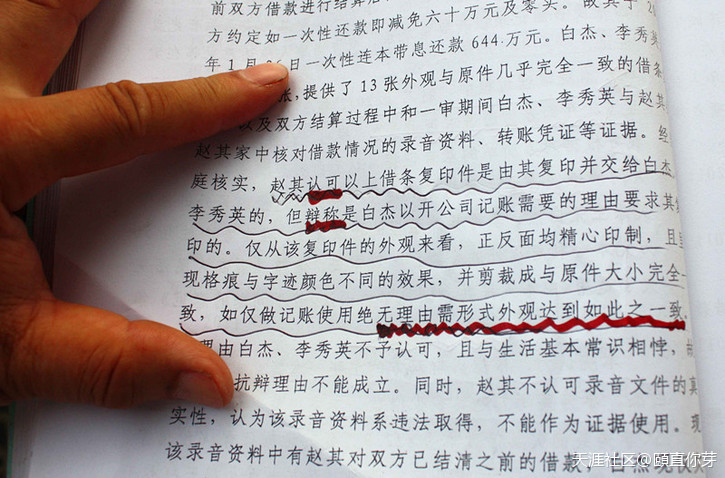 前双方借款进行结算
方约定如一次性还款即减免六十万元及零头。故其于2
年1月 6日一次性连本带息还款644.万元。白杰、李秀英
张,提供了13张外观与原件几乎完全一致的借条
以及双方结算过程中和一审期间白杰、李秀英与赵其
赵其家中核对借款情况的录音资料、转账凭证等证据。经
庭核实,赵其认可以上借条复印件是由其复印并交给白杰
李秀英的,但辩称是白杰以开公司记账需要的理由要求其
印的。仅从该复印件的外观来看,正反面均精心印制,且
现格痕与字迹颜色不同的效果,并剪裁成与原件大小完全一
致,如仅做记账使用绝无理由需形式外观达到如此之一致。
理由白杰、李秀英不予认可,且与生活基本常识相悖,故
抗辩理由不能成立。同时,赵其不认可录音文件的真
实性,认为该录音资料系违法取得,不能作为证据使用。现
该录音资料中有赵其对双方已结清之前的借款,
天涯社区@頤直你芽